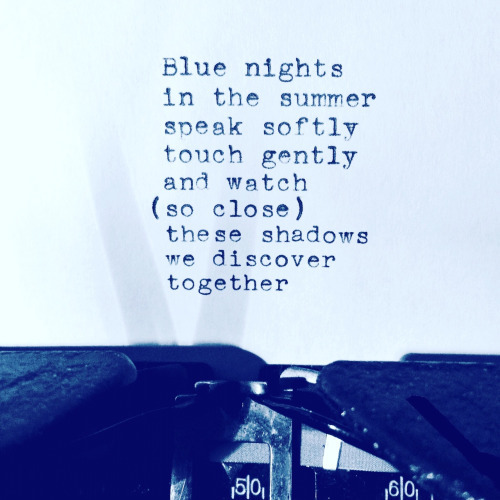 Blue nights
in the summer
speak softly
touch gently
and watch
(so close)
these shadows
we discover
together
50 60